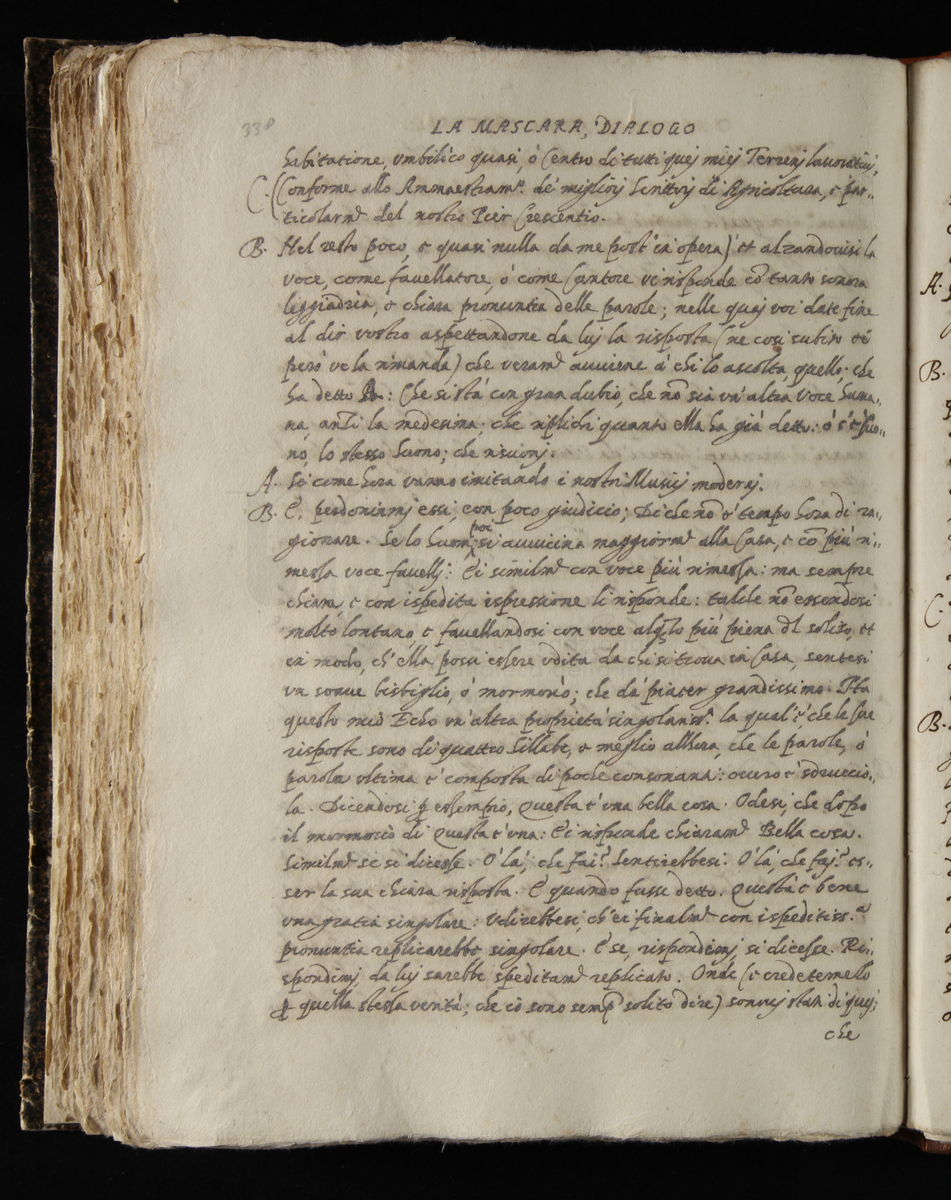 338
LA MASCARA, DIALOGO
habitatione, vmbilico quasi, ò Centro di tutti quej miej Terrenj lauoratiuj,
C. Conforme allo Ammaestram.º de' migliorj Scrittorj di Agricoltura, e par-
ticolarm.e del nostro Pier Crescentio.
B. Nel resto poco, e quasi nulla da me post' in opera) et alzandouisi la
voce, come fauellatore, ò come Cantore vi risponde cō tanto sonora
leggiadria, e chiara pronuntia delle parole; nelle quaj voi date fine
al dir vostro aspettandone da luj la risposta (ne così subito
però ve la rimanda) che veram.e auuiene à chi lo ascolta, quello, che
ha detto A.: Che si stà con gran dubio, che nō sia vn'altra voce huma-
na, anzi la medesima; che replichi quanto ella ha già detto: ò s'è suo-
no, lo stesso suono; che risuonj.
A. Sì come hora vanno imitando i nostri Musicj modernj.
B. E, perdoninmj essi, con poco giudicio; Di che nō è tempo hora di ra-
gionare. Se lo huom, poi si auuicina maggiorm.e alla Casa, e cō più ri-
messa voce fauellj: Ei similm.e con voce più rimessa: ma sempre
chiara, e con ispedita ispressione li risponde: talche nō essendosi
molto lontano e fauellandosi con voce alq̃to più piena dl solito, et
in modo, ch'ella possa essere vdita da chi si troua in Casa, sentesi
vn soaue bisbiglio, ò mormorio; che dà piacer grandissimo. Ha
questo mio Echo vn'altra proprietà singolariss.a la qual'è, che le sue
risposte sono di quattro sillabe, e meglio allhora, che le parole, ò
parola vltima è composta di poche consonanti: ouero è sdruccio-
la. Dicendosi p̱ essempio, Questa è una bella cosa. Odesi, che dopo
il mormorio di Questa è una: Ei risponde chiaram.e Bella cosa.
Similm.e se si dicesse. O' là, che fai? Sentirebbesi. O' là, che faj? es-
ser la sua chiara risposta. E quando fusse detto. Questa è bene
vna gratia singolare: Vdirebbesi, ch'ei finalm.e con ispeditiss.a
pronuntia replicarebbe singolare. E se, rispondimj, si dicesse. Ri-
spondimj, da luj sarebbe speditam.e replicato. Onde (e credetemelo
p̱ quella stessa verità; che io sono semp̱ solito dire) sonuj stati di quej;
che